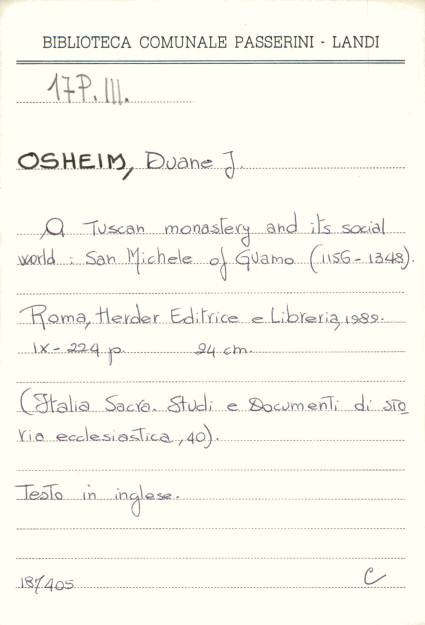 BIBLIOTECA COMUNALE PASSERINI - LANDI
17P.III.
OSHEIM, Duane J.
A Tuscan monastery and its social
world : San Michele of Guamo (1156-1348).
Roma, Herder Editrice e Libreria, 1989.
IX-224 p. 24 cm.
(Italia Sacra. Studi e Documenti di sto
ria ecclesiastica, 40).
Testo in inglese.
187405
C